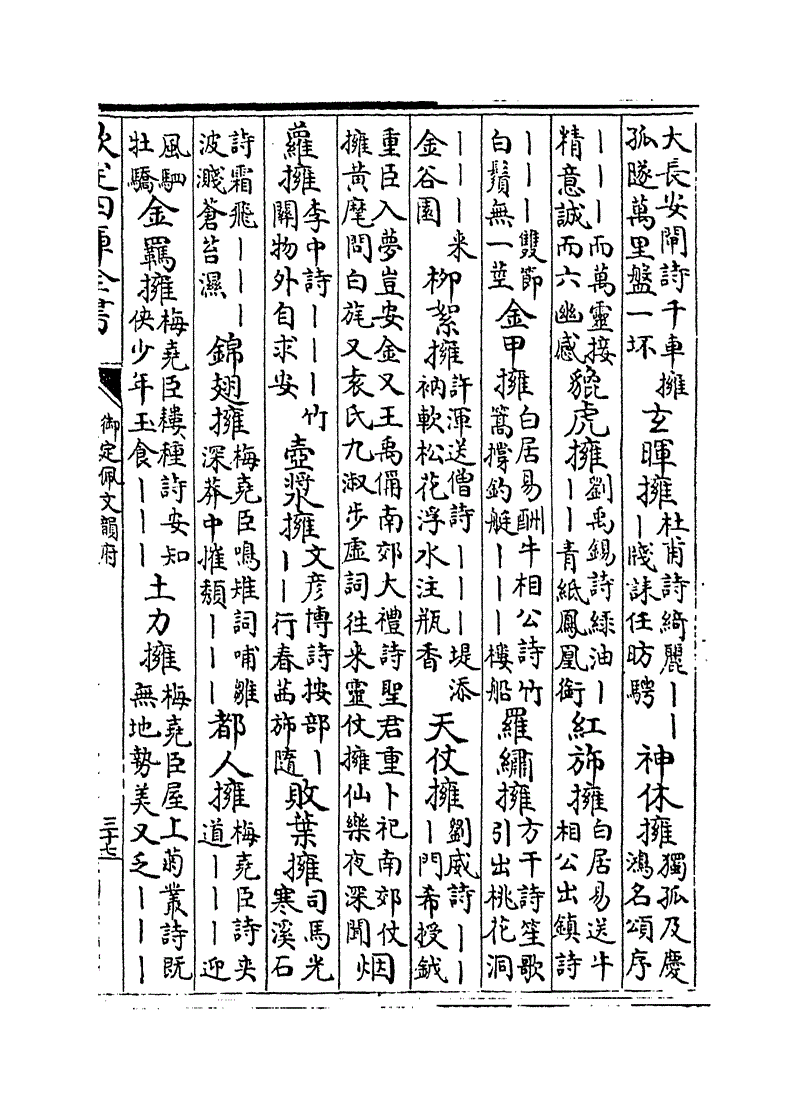 大長安閙詩千車擁孤隧萬里盤一坏 玄暉擁 杜甫詩綺麗丨丨丨牋誄任昉騁 神休擁 獨孤及慶鴻名頌序
丨丨丨而萬靈接精意誠而六幽感 貔虎擁 劉禹錫詩綠油丨丨丨青紙鳳凰銜 紅斾擁 白居易送牛相公出鎮詩
丨丨丨雙節白鬚無一莖 金甲擁 白居易酬牛相公詩竹篙撐釣艇丨丨丨樓船 羅繡擁 方干詩笙歌引出桃花洞
丨丨丨来金谷園 柳絮擁 許渾送僧詩丨丨丨堤添衲軟松花浮水注瓶香 天仗擁 劉威詩丨丨丨門希授鉞
重臣入夢豈安金又王禹偁南郊大禮詩聖君重卜祀南郊仗擁黄麾問白旄又袁氏九淑步虛詞往来靈仗擁仙樂夜深聞 烟
蘿擁 李中詩丨丨丨竹關物外自求安 壺漿擁 文彦博詩按部丨丨丨行春茜斾隨 敗葉擁 司馬光寒溪石
詩霜飛丨丨丨波濺蒼苔濕 錦翅擁 梅堯臣鳴雉詞哺雛深莽中摧頽丨丨丨 都人擁 梅堯臣詩夾道丨丨丨迎
風駟牡驕 金羈擁 梅堯臣耬種詩安知俠少年玉食丨丨丨 土力擁 梅堯臣屋上菊叢詩既無地勢美又乏丨丨丨
欽定四庫全書
御定佩文韻府
三十七